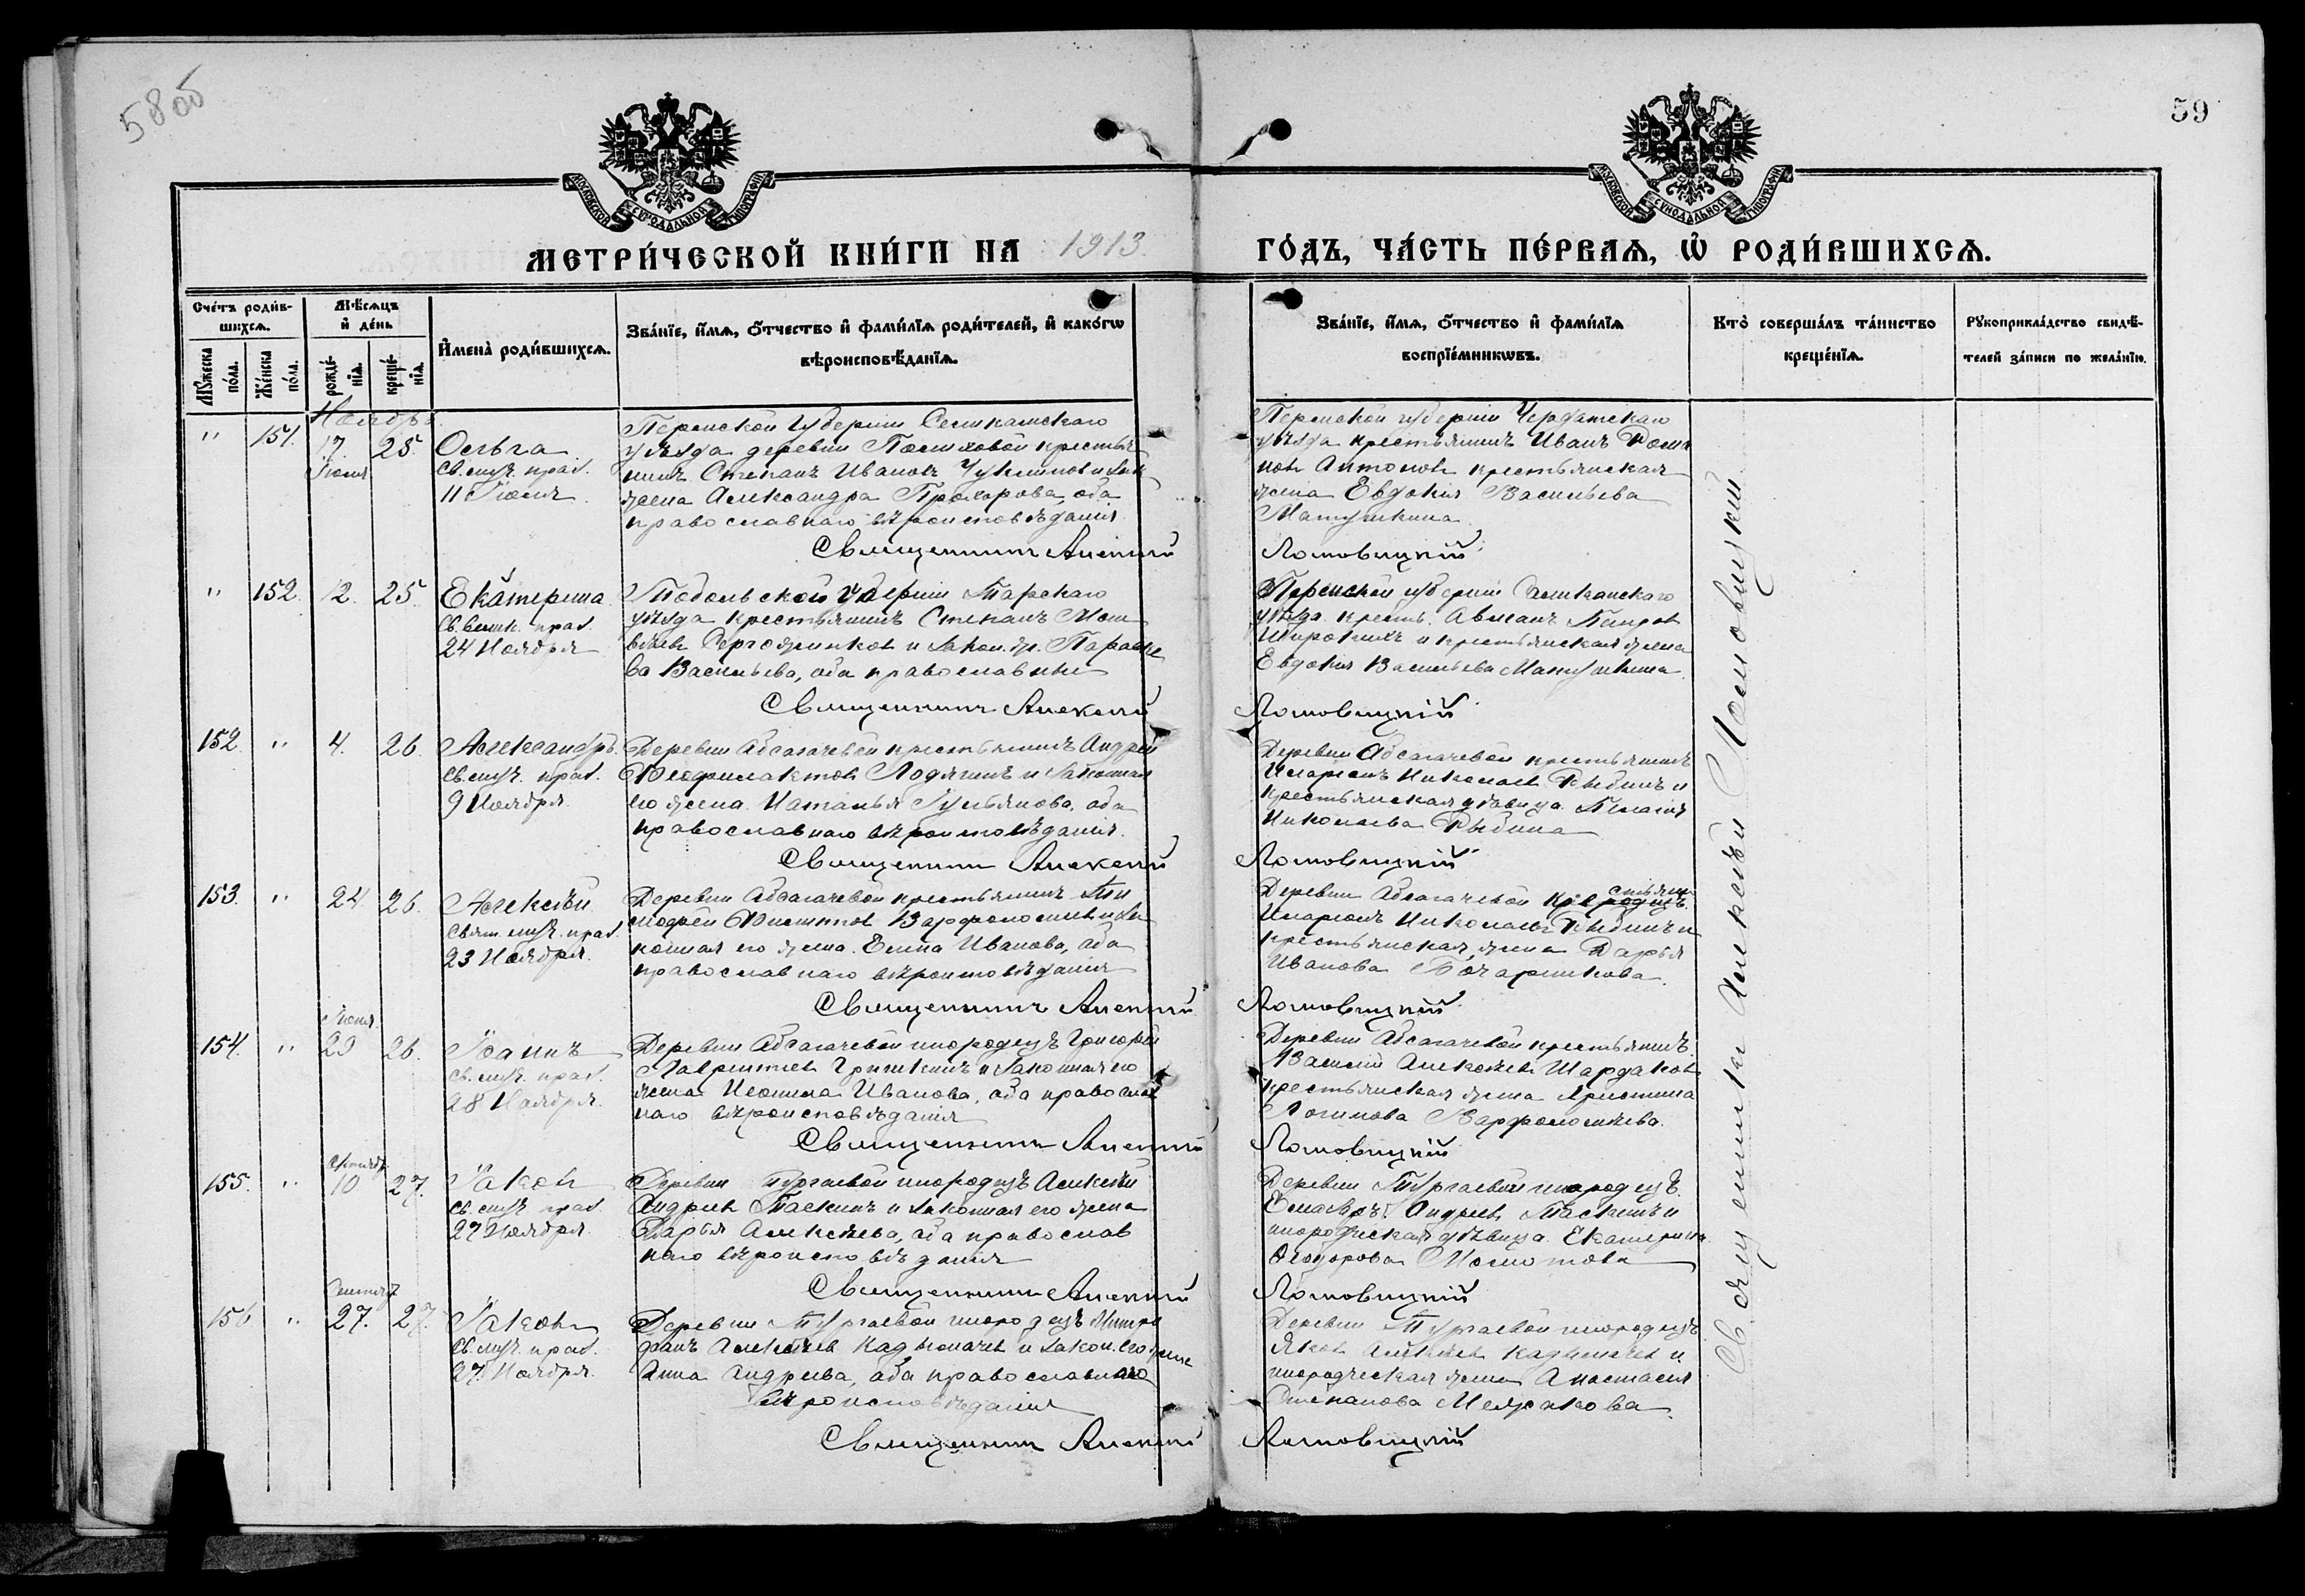 58 об
59
МОСКОВСКОЙ СѴНОДАЛЬНОЙ ТИПОГРАФІИ
МОСКОВСКОЙ СѴНОДАЛЬНОЙ ТИПОГРАФІИ
МЕТРИ́ЧЕСКОЙ КНИ́ГИ НА 1913
ГО́ДЪ, ЧА́СТЬ ПЕ́РВАѦ, Ѡ҆ РОДИ́ВШИХСѦ.
Сче́тъ роди́в-
шихсѧ.
Мꙋ́жеска
по́ла.
Же́нска
по́ла.
Мѣ́сѧцъ
и҆ де́нь
рожде́-
нїѧ.
креще́-
нїѧ.
И҆мена̀ роди́вшихсѧ.
Зва́нїе, и҆́мѧ, ѻ҆́тчество и҆ фами́лїѧ роди́телей, и҆ како́гѡ
вѣроисповѣ́данїѧ.
Зва́нїе, и҆́мѧ, ѻ҆́тчество и҆ фами́лїѧ
воспрїе́мникѡвъ.
Кто̀ соверша́лъ та́инство
креще́нїѧ.
Рꙋкоприкла́дство свидѣ́-
телей за́писи по жела́нїю.
Ноябрь
" 151. 17. 25. Ольга
Іюля
св. муч. праз.
11 Іюля
Пермской губерніи Соликамскаго
уѣзда деревни крестья
нинъ Степанъ Ивановъ и зак
жена Александра Прохорова, оба
православнаго вѣроисповѣданія
Священникъ Алексій
Пермской губерніи Чердынскаго
уѣзда крестьянинъ Иванъ Рома
новъ Антоновъ крестьянская
жена Евдокия Васильева
Матушкина
Ломовицкій
" 152. 12. 25. Екатерина
св. велик. праз.
24 Ноября
Тобольской губерніи Тарскаго
уѣзда крестьянинъ Степанъ Мат
вѣевъ и закон. ж. Параске
ва Васильева, оба православные
Священникъ Алексій
Пермской губерніи Соликамскаго
уѣзда крестьян. Петровъ
Широкихъ и крестьянская жена
Евдокия Васильева Матушкина
Ломовицкій
152. " 4. 26. Александръ
св. муч. праз.
9 Ноября
Деревни Абсагачевой крестьянинъ Андрей
Ѳеофилактовъ Лодягинъ и законная
его жена Наталья Гурьянова, оба
православнаго вѣроисповѣданія.
Священникъ Алексій
Деревни Абсагачевой крестьянинъ
Иларіонъ Николаевъ Рыбинъ и
крестьянская дѣвица Пелагія
Николаева Рыбина
Ломовицкій
153. " 24 26. Алексѣй
свят. муч. праз.
23 Ноября.
Деревни Абсагачевой крестьянинъ Ти
моѳей Филипповъ Варфоломеевъ и за
конная его жена Елена Иванова, оба
православнаго вѣроисповѣданія
Священникъ Алексій
Деревни Абсагачевой крестьян
Иларіонъ Николаевъ Рыбинъ и
крестьянская жена Дарья
Иванова Бочарникова.
Ломовицкій
Іюня
154. " 29 26. Іоаннъ
св. муч. праз.
28 Ноября.
Деревни Абсагачевой инородецъ Григорій
Лаврентіевъ Гришкинъ и законная его
жена Неонила Иванова, оба православ
наго вѣроисповѣданія
Священникъ Алексій
Деревни Абсагачевой крестьянинъ
Василій Алексѣевъ Шардаковъ
крестьянская жена Христина
Логинова Варфоломѣева.
Ломовицкій
Октября
155. " 10 27. Іаковъ
св. муч. праз.
27 Ноября
Деревни Тургаевой инородецъ Алексѣй
Андреевъ Таскинъ и законная его жена
Дарья Алексѣева, оба православ
наго вѣроисповѣданія
Священникъ Алексій
Деревни Тургаевой инородецъ
Андреевъ Таскинъ и
инородческая дѣвица Екатерина
Ѳеодорова
Ломовицкій
156 " 27. 27. Іаковъ
св. муч. праз.
27 Ноября.
Деревни Тургаевой инородецъ Митро
фанъ Алексѣевъ Кадымачевъ и закон. его жена
Анна Андреева, оба православнаго
вѣроисповѣданія
Священникъ Алексій
Деревни Тургаевой инородецъ
Яковъ Алексѣевъ Кадымачевъ и
инородческая жена Анастасия
Степанова
Ломовицкій
Священникъ Алексѣй Ломовицкій